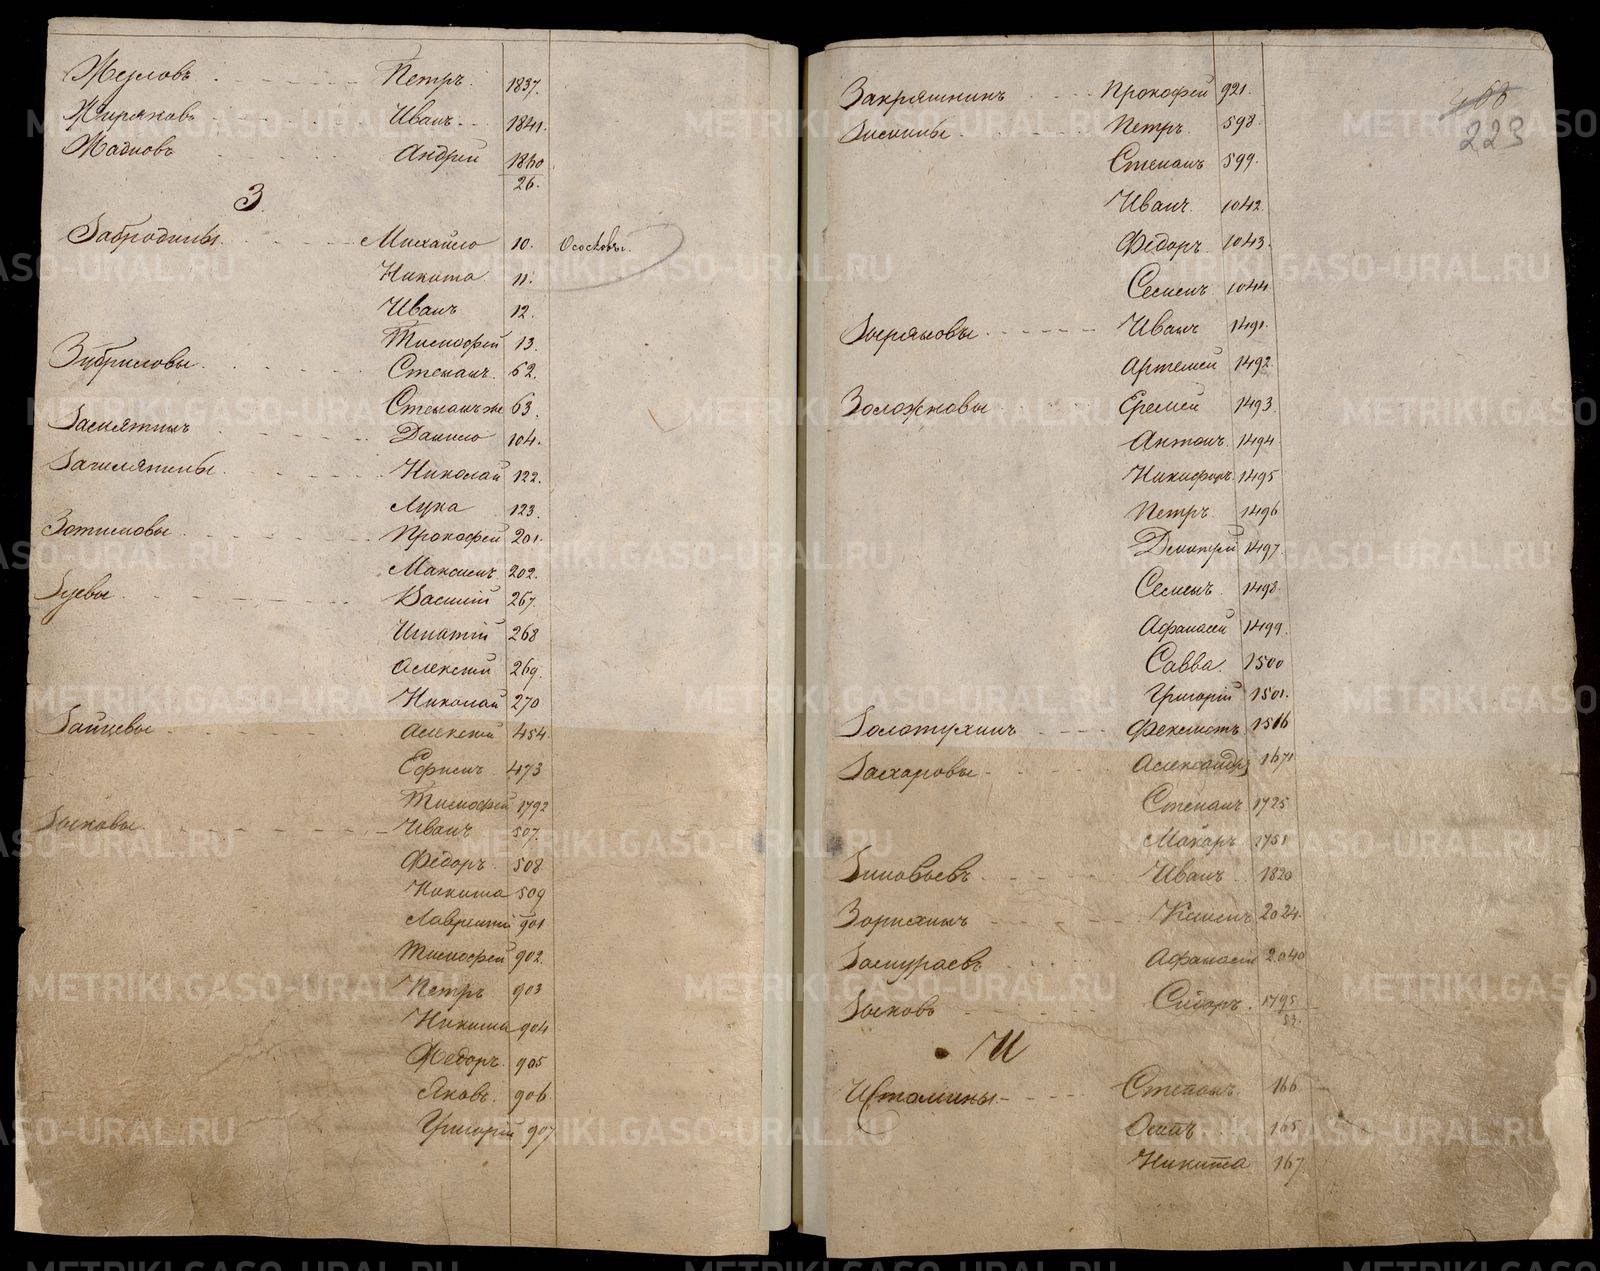 Жуловъ Петръ 1837.
Жиряковъ Иванъ 1841.
Жадковъ Андрей 1860
26.
З
Забродины Михайло 10. Ососковы.
Никита 11.
Иванъ 12.
Тимофей 13.
Зубриловы Степанъ 62.
Степанъ же 63.
Замятинъ Данило 104.
Николай 122.
Лука 123.
Зотиковы Прокофей 201.
Максимъ 202.
Зуевы Василий 267.
Игнатий 268
Алексей 269.
Николай 270
Зайцевы Алексей 454
Ефимъ 473
Тимофей 1792
Зыковы Иванъ 507.
Федоръ 508
Никита 509
Лаврентий 901
Тимофей 902.
Петръ 903
Никита 904
Федоръ 905
Яковъ 906
Григорий 907
223
Закряшнинъ Прокофей 921.
Зимины Петръ 598.
Степанъ 599.
Иванъ 1042.
Федоръ 1043.
Семенъ 1044.
Зыряновы Иванъ 1491.
Артемей 1492.
Золожновы Еремей 1493.
Антонъ 1494.
Никифоръ 1495
Петръ 1496
Дмитрей 1497.
Семенъ 1498.
Афанасей 1499.
Савва 1500
Григорий 1501.
Золотухинъ Феклистъ 1516
Захаровы Александръ 1671
Степанъ 1725
Макаръ 1751
Зиновьевъ Иванъ 1820
Зорихинъ Климъ 2024.
Замураевъ Афанасей 2040
Зыковъ Сидоръ 1795
И
Истомины Степанъ 166
Осипъ 165
Никита 167